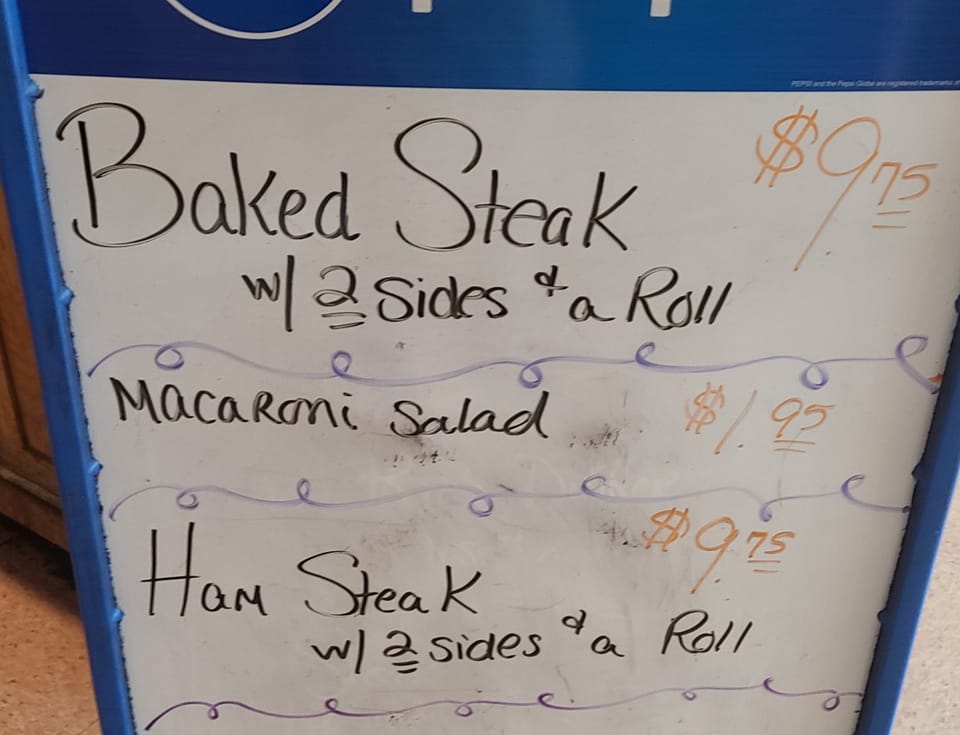 PEPSI and the Pepsi Globe are registered trademarks of
Baked Steak $9.75
w/ 2 Sides & a Roll
Macaroni Salad $1.95
Ham Steak $9.75
w/ 2 sides & a Roll